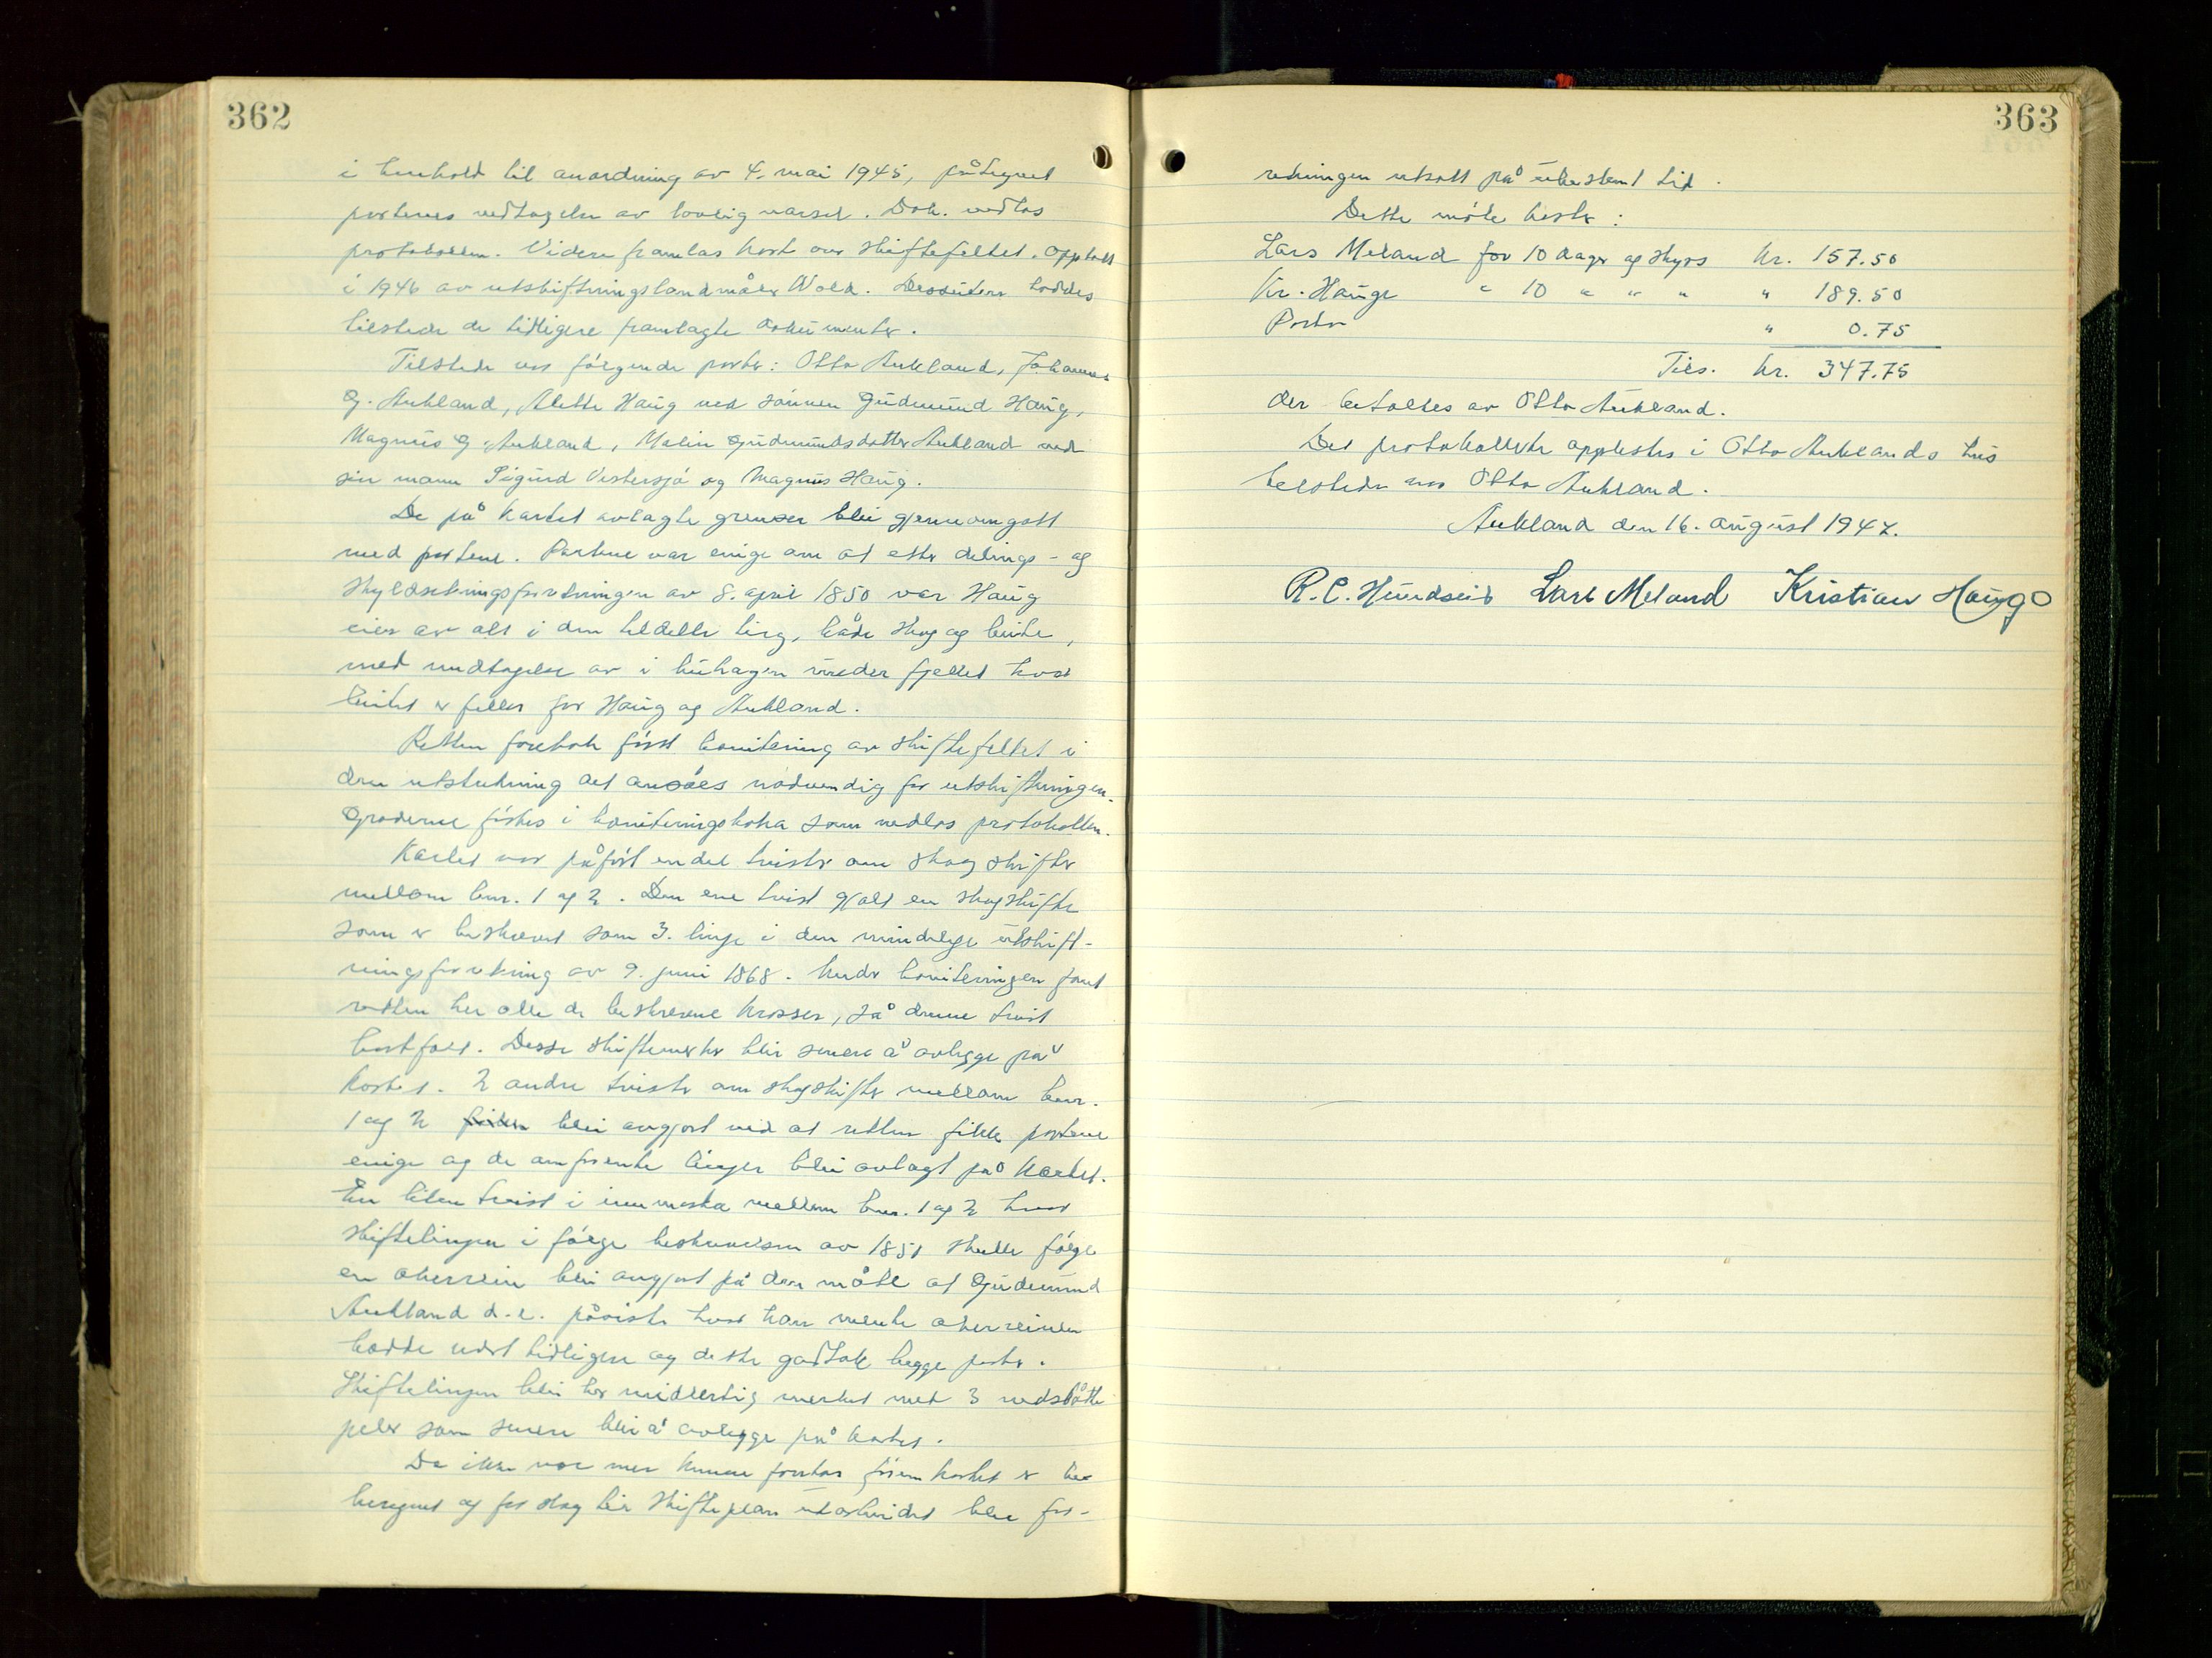 362
i henhold til anordning av 4. mai 1945, påtegnet
partenes vedtagelse av lovlig varsel. Dok. vedlas
protokollen. Videre framlas kart over skiftefeltet. Opptatt
i 1946 av utskiftningslandmåler Wold. Dessuten haddes
tilstede de tidligere framlagte dokumenter.
Tilstede var følgende parter: Otto Aukland, Johannes
G. Aukland, Alette Haug ved sønnen Gudmund Haug,
Magnus G. Aukland, Malin Gudmundsdatter Aukland ved
sin mann Sigurd Vestersjø og Magnus Haug.
De på kartet avlagte grenser blei gjennomgått
med partene. Partene var enige om at etter delings- og
skyldsetningsforretningen av 8. april 1850 var Haug
eier av alt i den tildelte teig, både skog og beite,
med undtagelse av i kuhagen under fjellet hvor
beitet er felles for Haug og Aukland.
Retten foretok først bonitering av skiftefeltet i
den utstrekning det ansåes nødvendig for utskiftningen.
Graderne førtes i boniteringsboka som vedlas protokollen.
Kartet var påført endel tvister om skogskifter
mellom bnr. 1 og 2. Den ene tvist gjalt en skogskifte
som er beskrevet som 3. linje i den mindelige utskift-
ningsforretning av 9. juni 1868. Under boniteringen fant
retten her alle de beskrevne krosser, så denne tvist
bortfalt. Disse skiftemerker blir senere å avlegge på
kartet. 2 andre tvister om skogskifter mellom bnr.
1 og 2 blei avgjort ved at retten fikk partene
enige og de omforente linjer blei avlagt på kartet.
En liten tvist i innmarka mellom bnr. 1 og 2 hvor
skiftelinjen i følge beskrivelsen av 1850 skulle følge
en åkerrein blei avgjort på den måte at Gudmund
Aukland d.e. påviste hvor han mente åkerreinen
hadde vært tidligere og dette godtok begge parter.
Skiftelinjen blei her midlertig merket med 3 nedslåtte
peler som senere blir å avlegge på kartet.
Da ikke var mer kunne foretas førenn kartet er
beregnet og forslag til skifteplan utarbeidet blei for-
363
retningen utsatt på ubestemt tid.
Dette møte koster:
Lars Meland for 10 dager og skyss kr. 157.50
Kr. Hauge " 10 " " " " 189.50
Porto " 0.75
Tils. kr. 347.75
der betaltes av Otto Aukland.
Det protokollerte opplestes i Otto Auklands hus
tilstede var Otto Aukland.
Aukland den 16. august 1947.
R. C. Hundseid Lars Meland Kristian Hauge